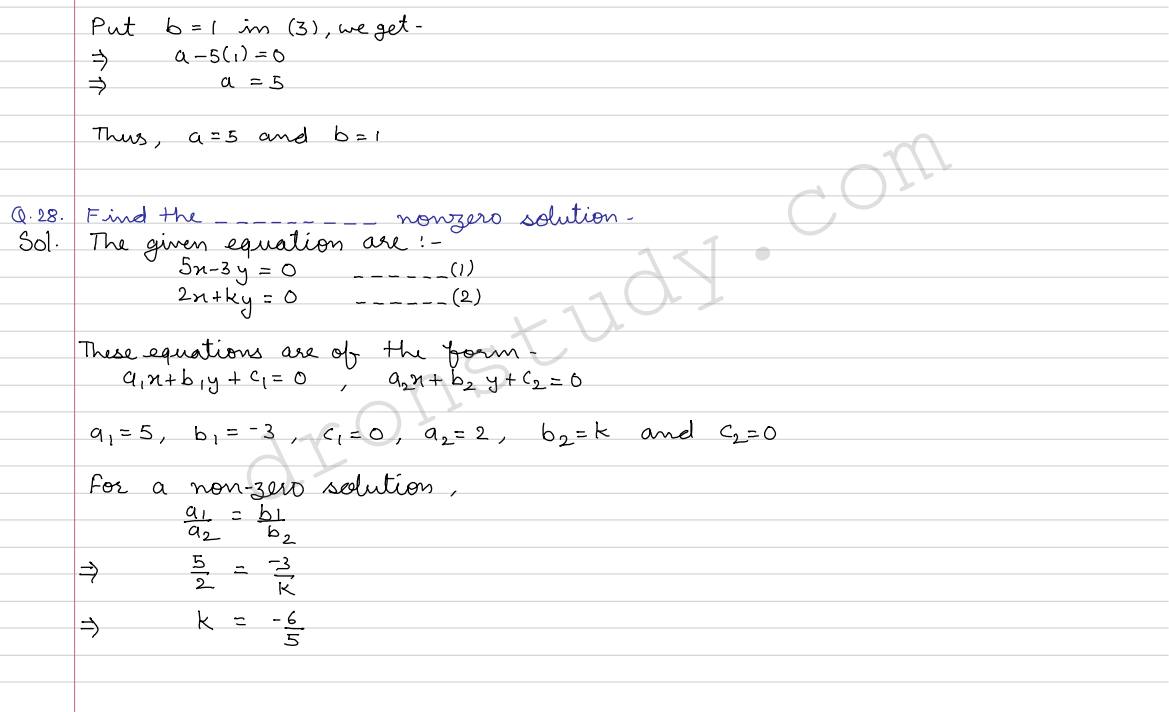 Put b = 1 in (3), we get -
⇒ a - 5(1) = 0
⇒ a = 5
Thus, a = 5 and b = 1
Q.28. Find the _ _ _ _ _ _ _ _ _ nonzero solution.
Sol. The given equation are :-
5x - 3y = 0 _ _ _ _ _ _ (1)
2x + ky = 0 _ _ _ _ _ _ (2)
These equations are of the form -
a₁x + b₁y + c₁ = 0 , a₂x + b₂y + c₂ = 0
a₁ = 5, b₁ = -3, c₁ = 0, a₂ = 2, b₂ = k and c₂ = 0
For a non-zero solution,
a₁/a₂ = b₁/b₂
⇒ 5/2 = -3/k
⇒ k = -6/5
dronstudy.com